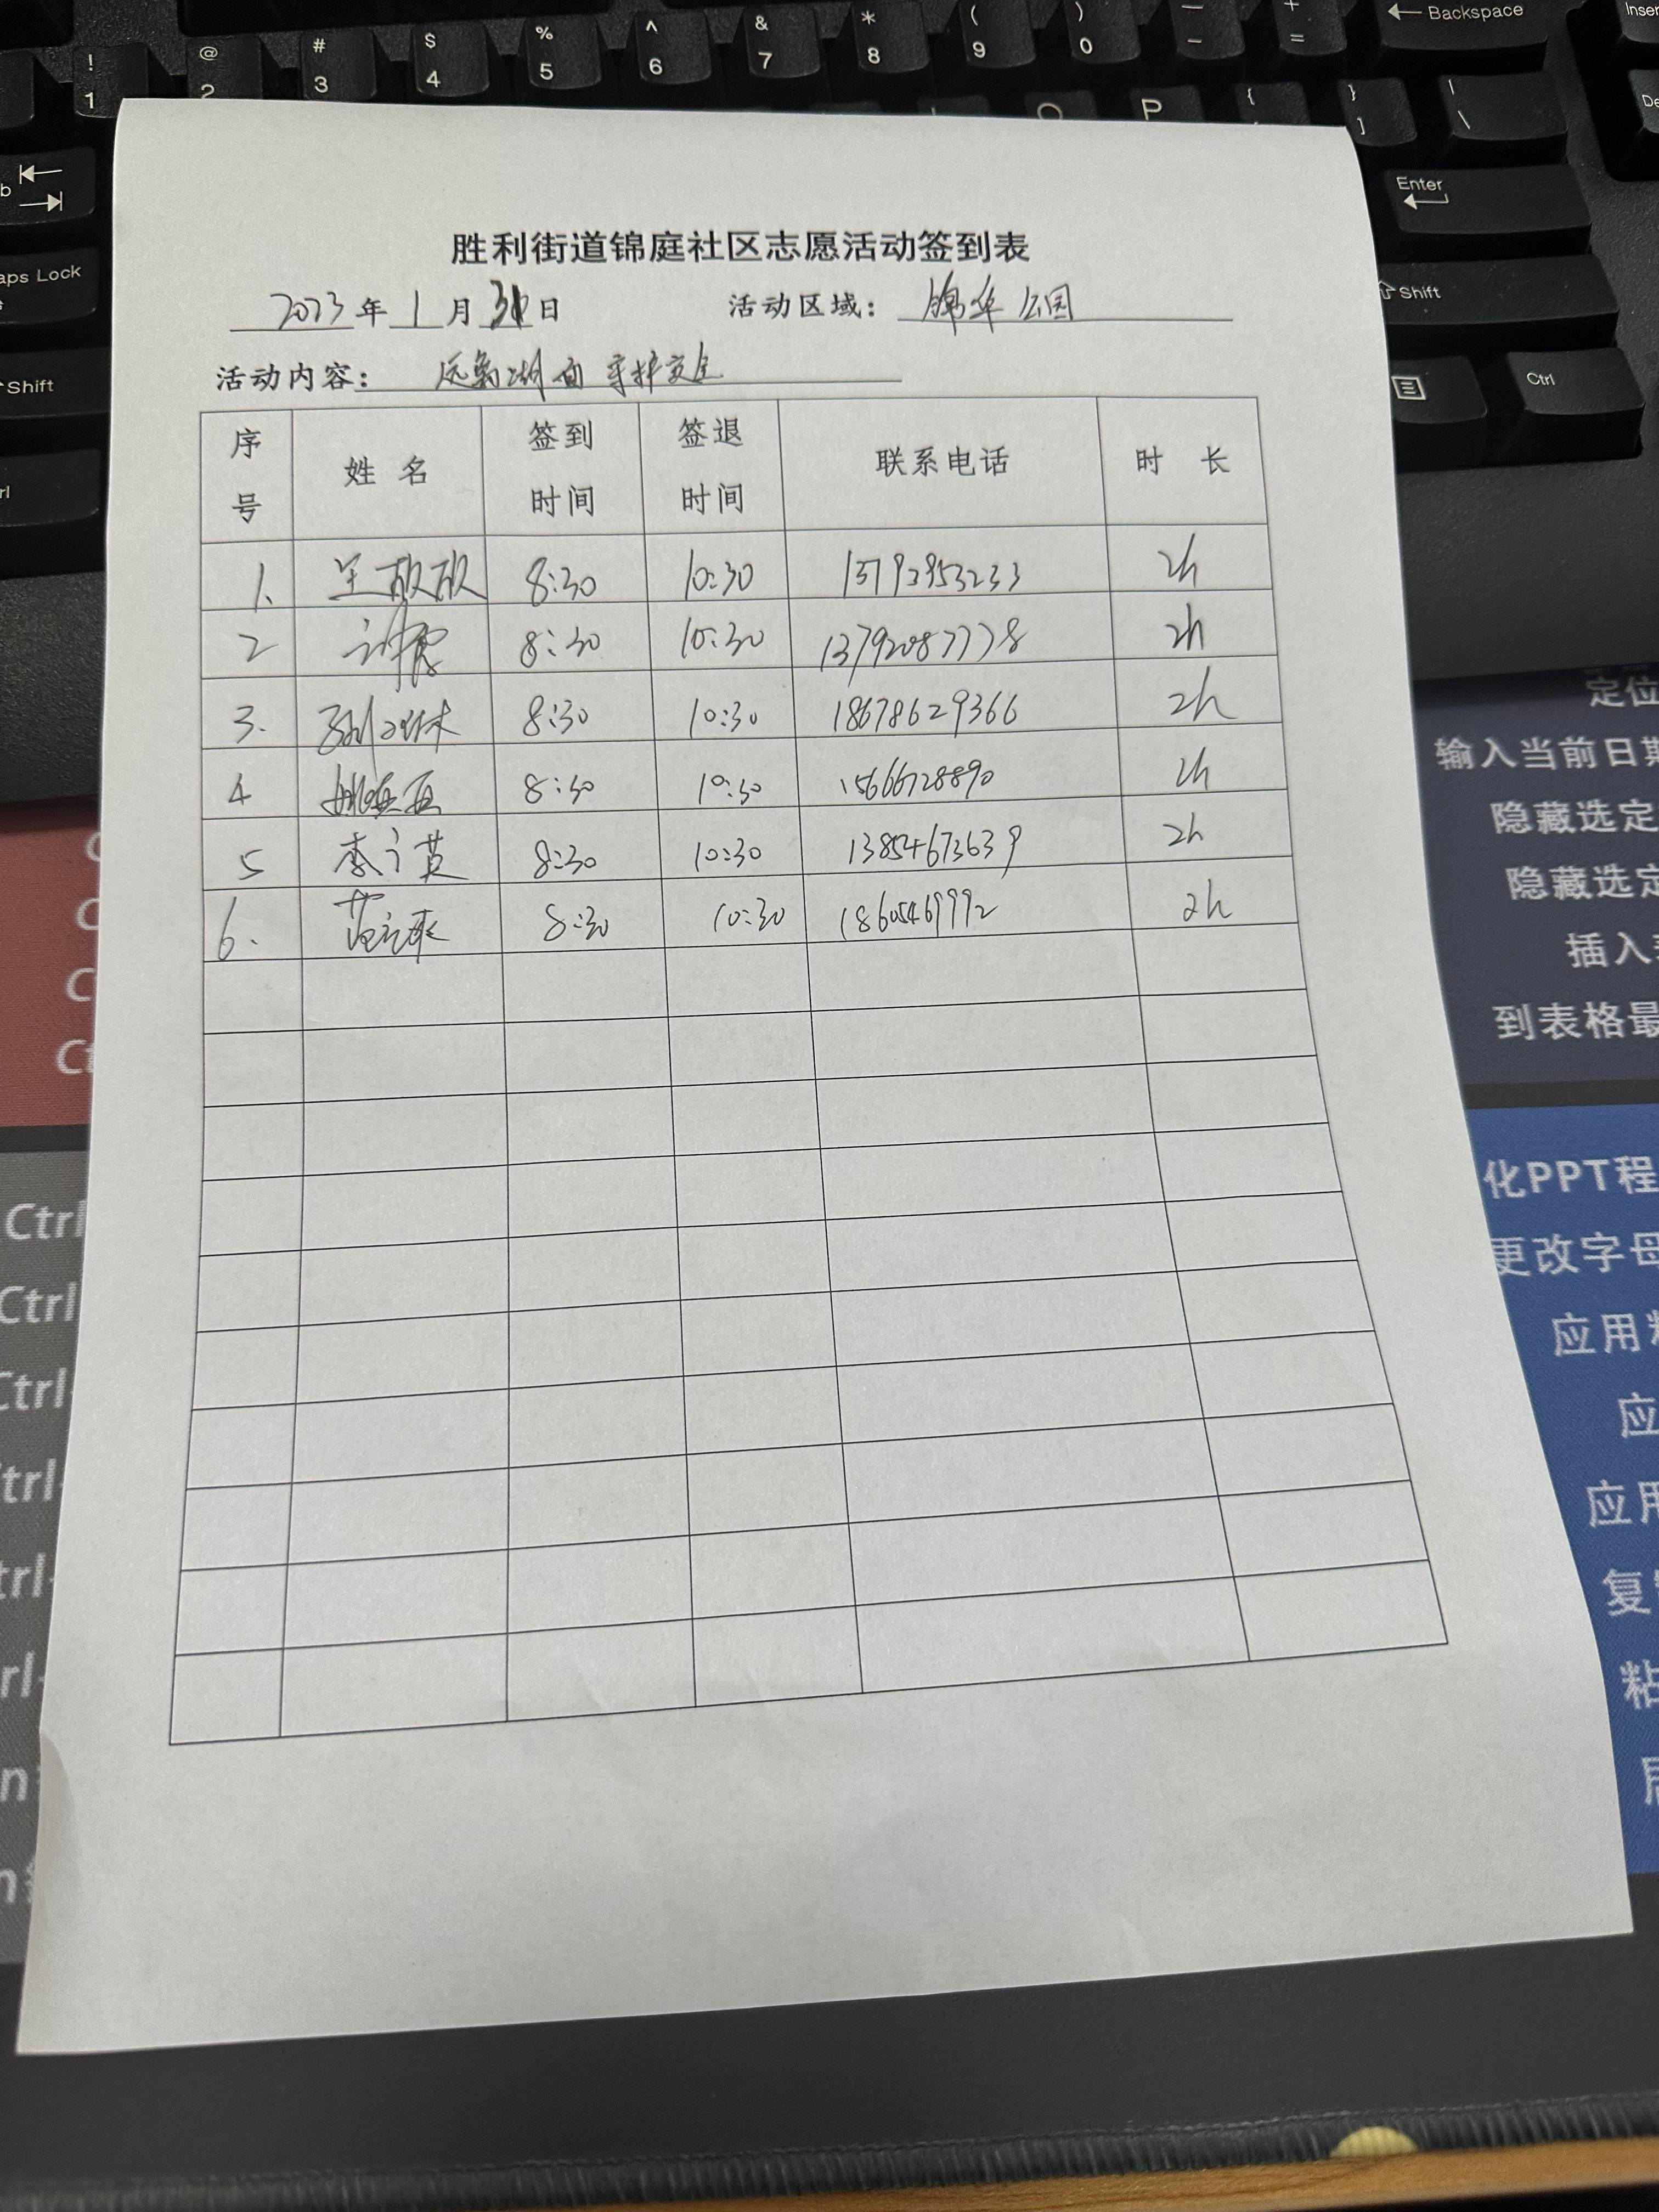 ! 1 @ 2 # 3 $ 4 % 5 ^ 6 & 7 * 8 ( 9 ) 0 — - + = ← Backspace
O P { [ } ] | \
Enter
aps Lock
Shift
Shift
Ctrl
胜利街道锦庭社区志愿活动签到表
2023年1月31日 活动区域：锦华公园
活动内容：远离湖面 守护安全
序号 姓名 签到时间 签退时间 联系电话 时长
1. 8:30 10:30 2h
2 8:30 10:30 13792087778 2h
3. 8:30 10:30 18678629366 2h
4 8:30 10:30 15666728890 2h
5 8:30 10:30 13854673639 2h
6. 8:30 10:30 18605469992 2h
定位
输入当前日期
隐藏选定
隐藏选定
插入
到表格最
化PPT程
更改字母
应用
应
应用
复
粘
Ctrl
Ctrl
Ctrl